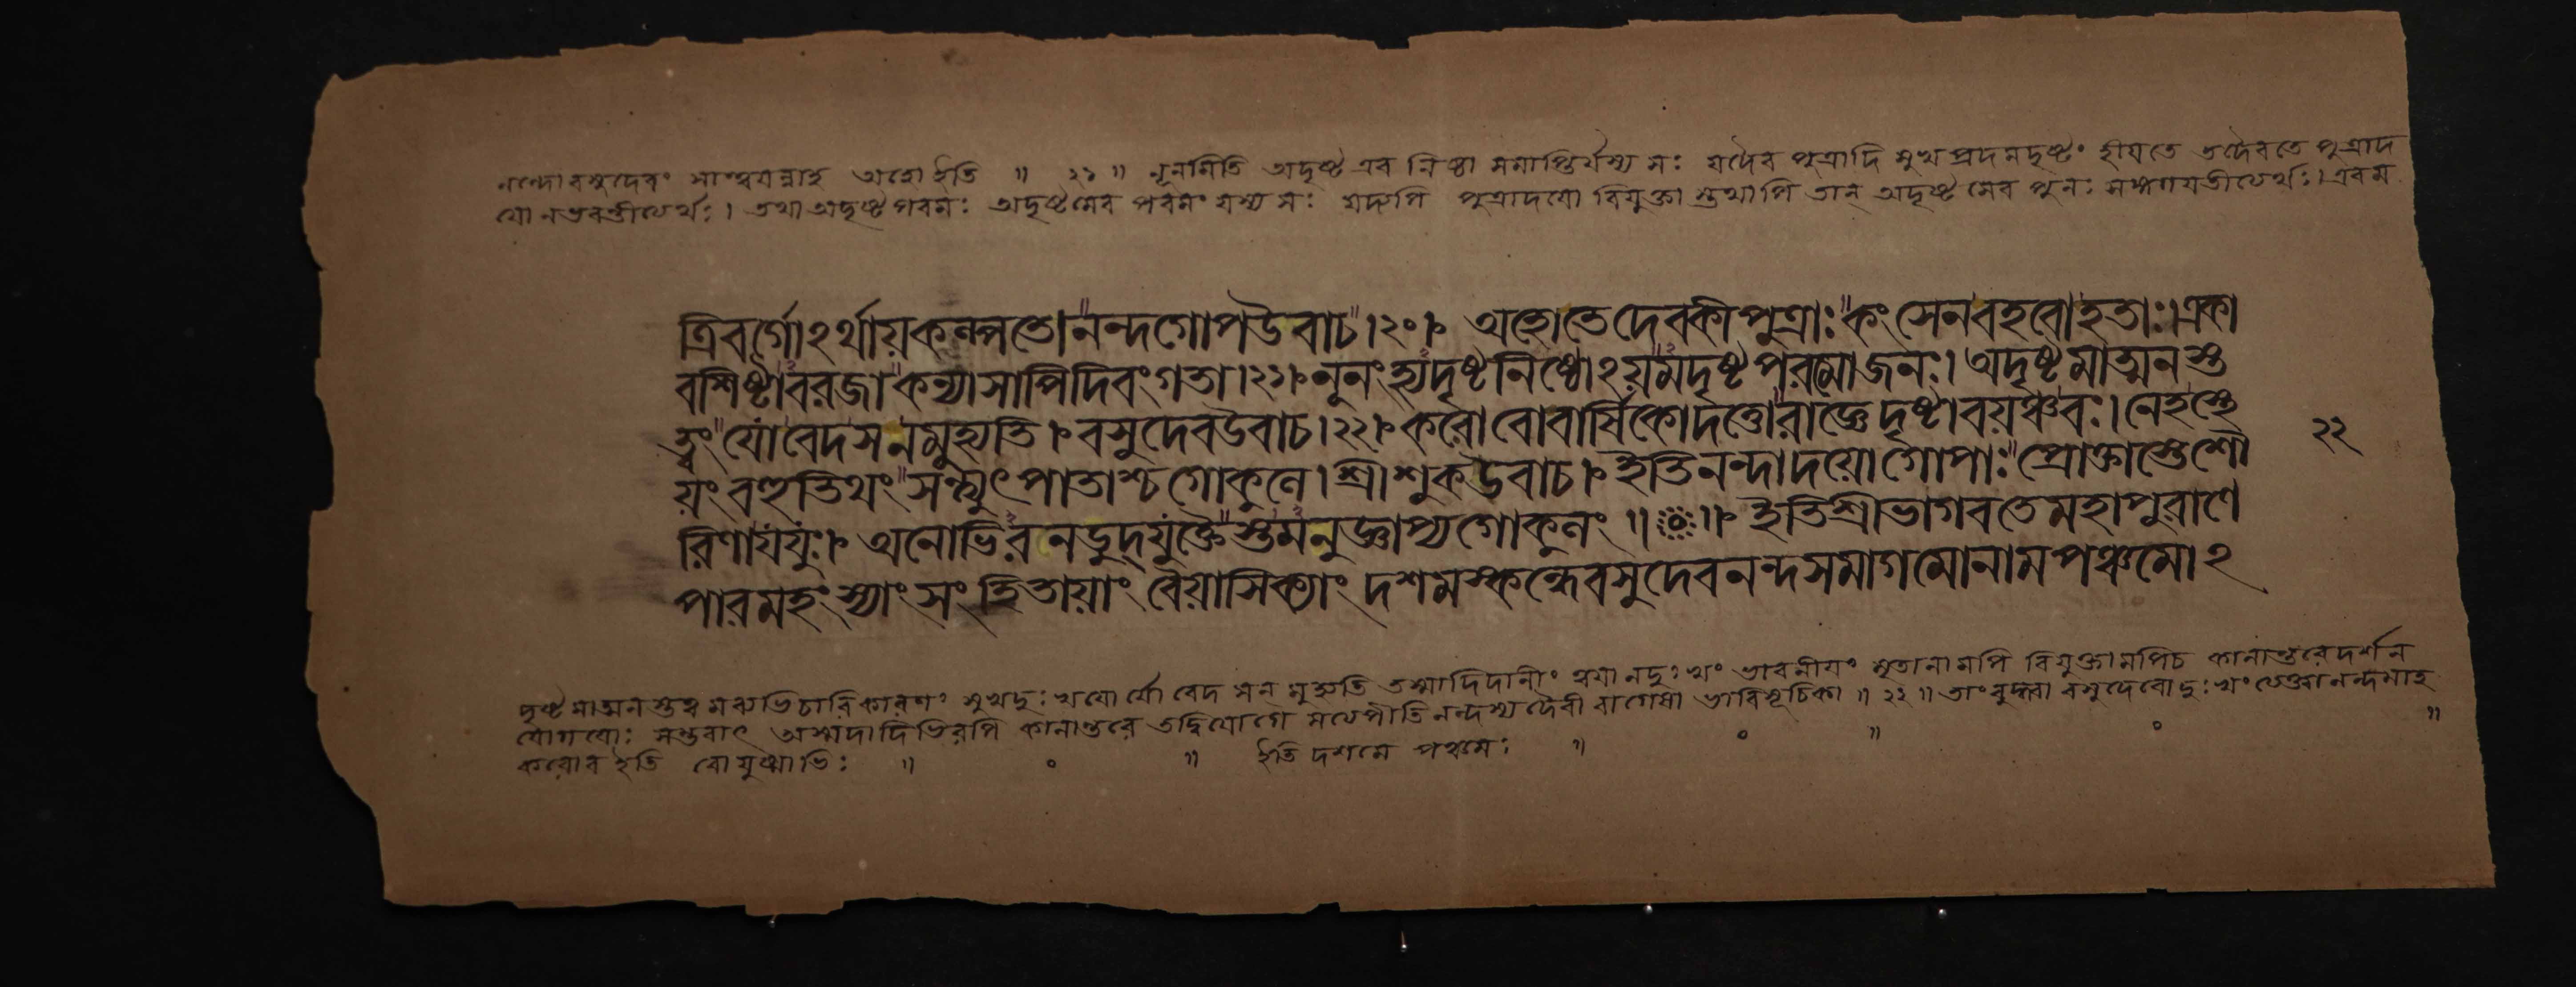 নন্দো বসুদেবং সাশ্বযন্নাহ অহো ইতি ॥ ২১ ॥ নূনমিতি অদৃষ্ট এব নিষ্ঠা সমাপ্তির্যস্য সঃ যদৈব পুত্রাদি সুখপ্রদমদৃষ্টং হীযতে তদৈবতে পুত্রাদ
যো নভবন্তীত্যর্থঃ। তথা অদৃষ্টপরমঃ অদৃষ্টমেব পরমং যস্য সঃ যদ্যপি পুত্রাদযো বিযুক্তা স্তথাপি তান্ অদৃষ্টমেব পুনঃ সঙ্গময়তীত্যর্থঃ। এবম
ত্রিবর্গোঽর্থায়কল্পতে।নন্দগোপউবাচ।২০। অহোতেদেবকীপুত্রাঃকংসেনবহবোহতাঃ।একা
বশিষ্টাবরজাকন্যাসাপিদিবংগতা।২১।নূনংহ্যদৃষ্টনিষ্ঠোঽয়মদৃষ্টপরমোজনঃ। অদৃষ্টমাত্মনস্ত
ত্ত্বংযোবেদসনমুহ্যতি। বসুদেবউবাচ।২২। করোবোবার্ষিকোদত্তোরাজ্ঞেদৃষ্টাবয়ঞ্চবঃ। নেহস্থে
য়ংবহুতিথংসন্ত্যুৎপাতাশ্চগোকুলে। শ্রীশুকউবাচ। ইতিনন্দাদয়োগোপাঃপ্রোক্তাস্তেশৌ
২২
রিণাযযুঃ। অনোভিরনডুদ্যুক্তৈস্তমনুজ্ঞাপ্যগোকুলং ॥ ॥ ইতিশ্রীভাগবতেমহাপুরাণে
পারমহংস্যাংসংহিতায়াং বৈয়াসিক্যাং দশমস্কন্ধেবসুদেবনন্দসমাগমোনামপঞ্চমোঽ
দৃষ্টমাত্মনস্তত্ত্বমব্যভিচারিকারণং সুখদুঃখযো র্যো বেদ স ন মুহ্যতি তস্মাদিদানীং ত্বযা নদুঃখং ভাবনীযং মৃতানামপি বিযুক্তানামপিচ কালান্তরেদর্শন
যোগযোঃ সম্ভবাৎ অস্মদাদিভিরপি কালান্তরে তদ্বিযোগো মন্তেপীতিনন্দস্য দৈবী বাগেষা ভাবিসূচিকা ॥ ২২ ॥ তাংবুদ্ধ্বা বসুদেবোদুঃখংত্যক্ত্বানন্দমাহ
করোব ইতি বো যুষ্মাভিঃ ॥ ॰ ॥ ইতি দশমে পঞ্চমঃ ॥ ॰ ॥ ॰ ॥